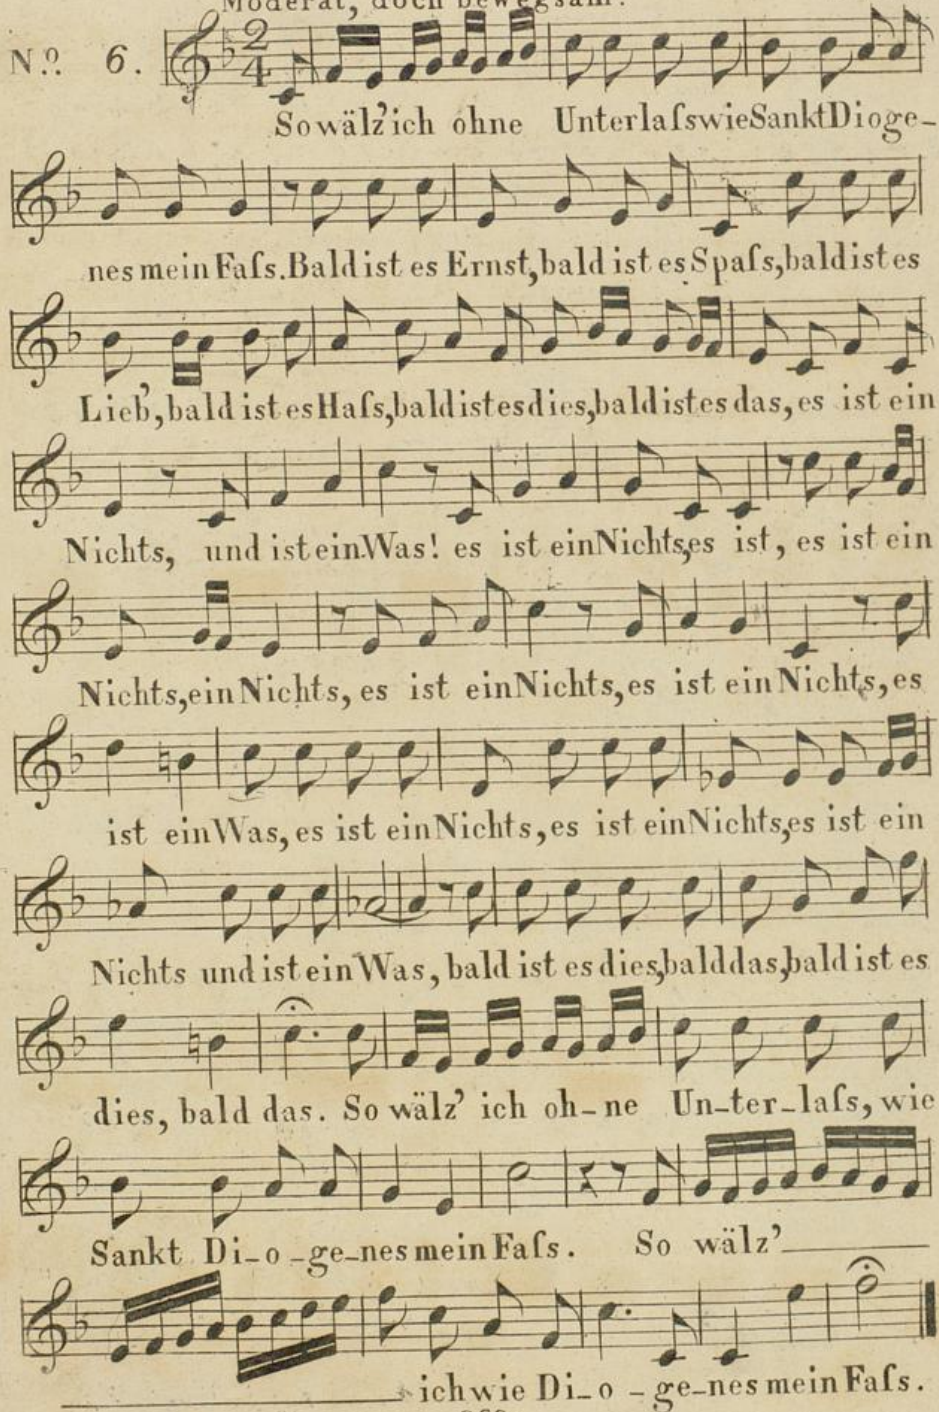 Moderat, doch bewegsam.
N.º 6.
2
4
So wälz' ich ohne Unterlaſs wie Sankt Dioge-
nes mein Faſs. Bald ist es Ernst, bald ist es Spaſs, bald ist es
Lieb', bald ist es Haſs, bald ist es dies, bald ist es das, es ist ein
Nichts, und ist ein Was! es ist ein Nichts, es ist, es ist ein
Nichts, ein Nichts, es ist ein Nichts, es ist ein Nichts, es
ist ein Was, es ist ein Nichts, es ist ein Nichts, es ist ein
Nichts und ist ein Was, bald ist es dies, bald das, bald ist es
dies, bald das. So wälz' ich oh-ne Un-ter-laſs, wie
Sankt Di-o-ge-nes mein Faſs. So wälz'
ich wie Di-o-ge-nes mein Faſs.